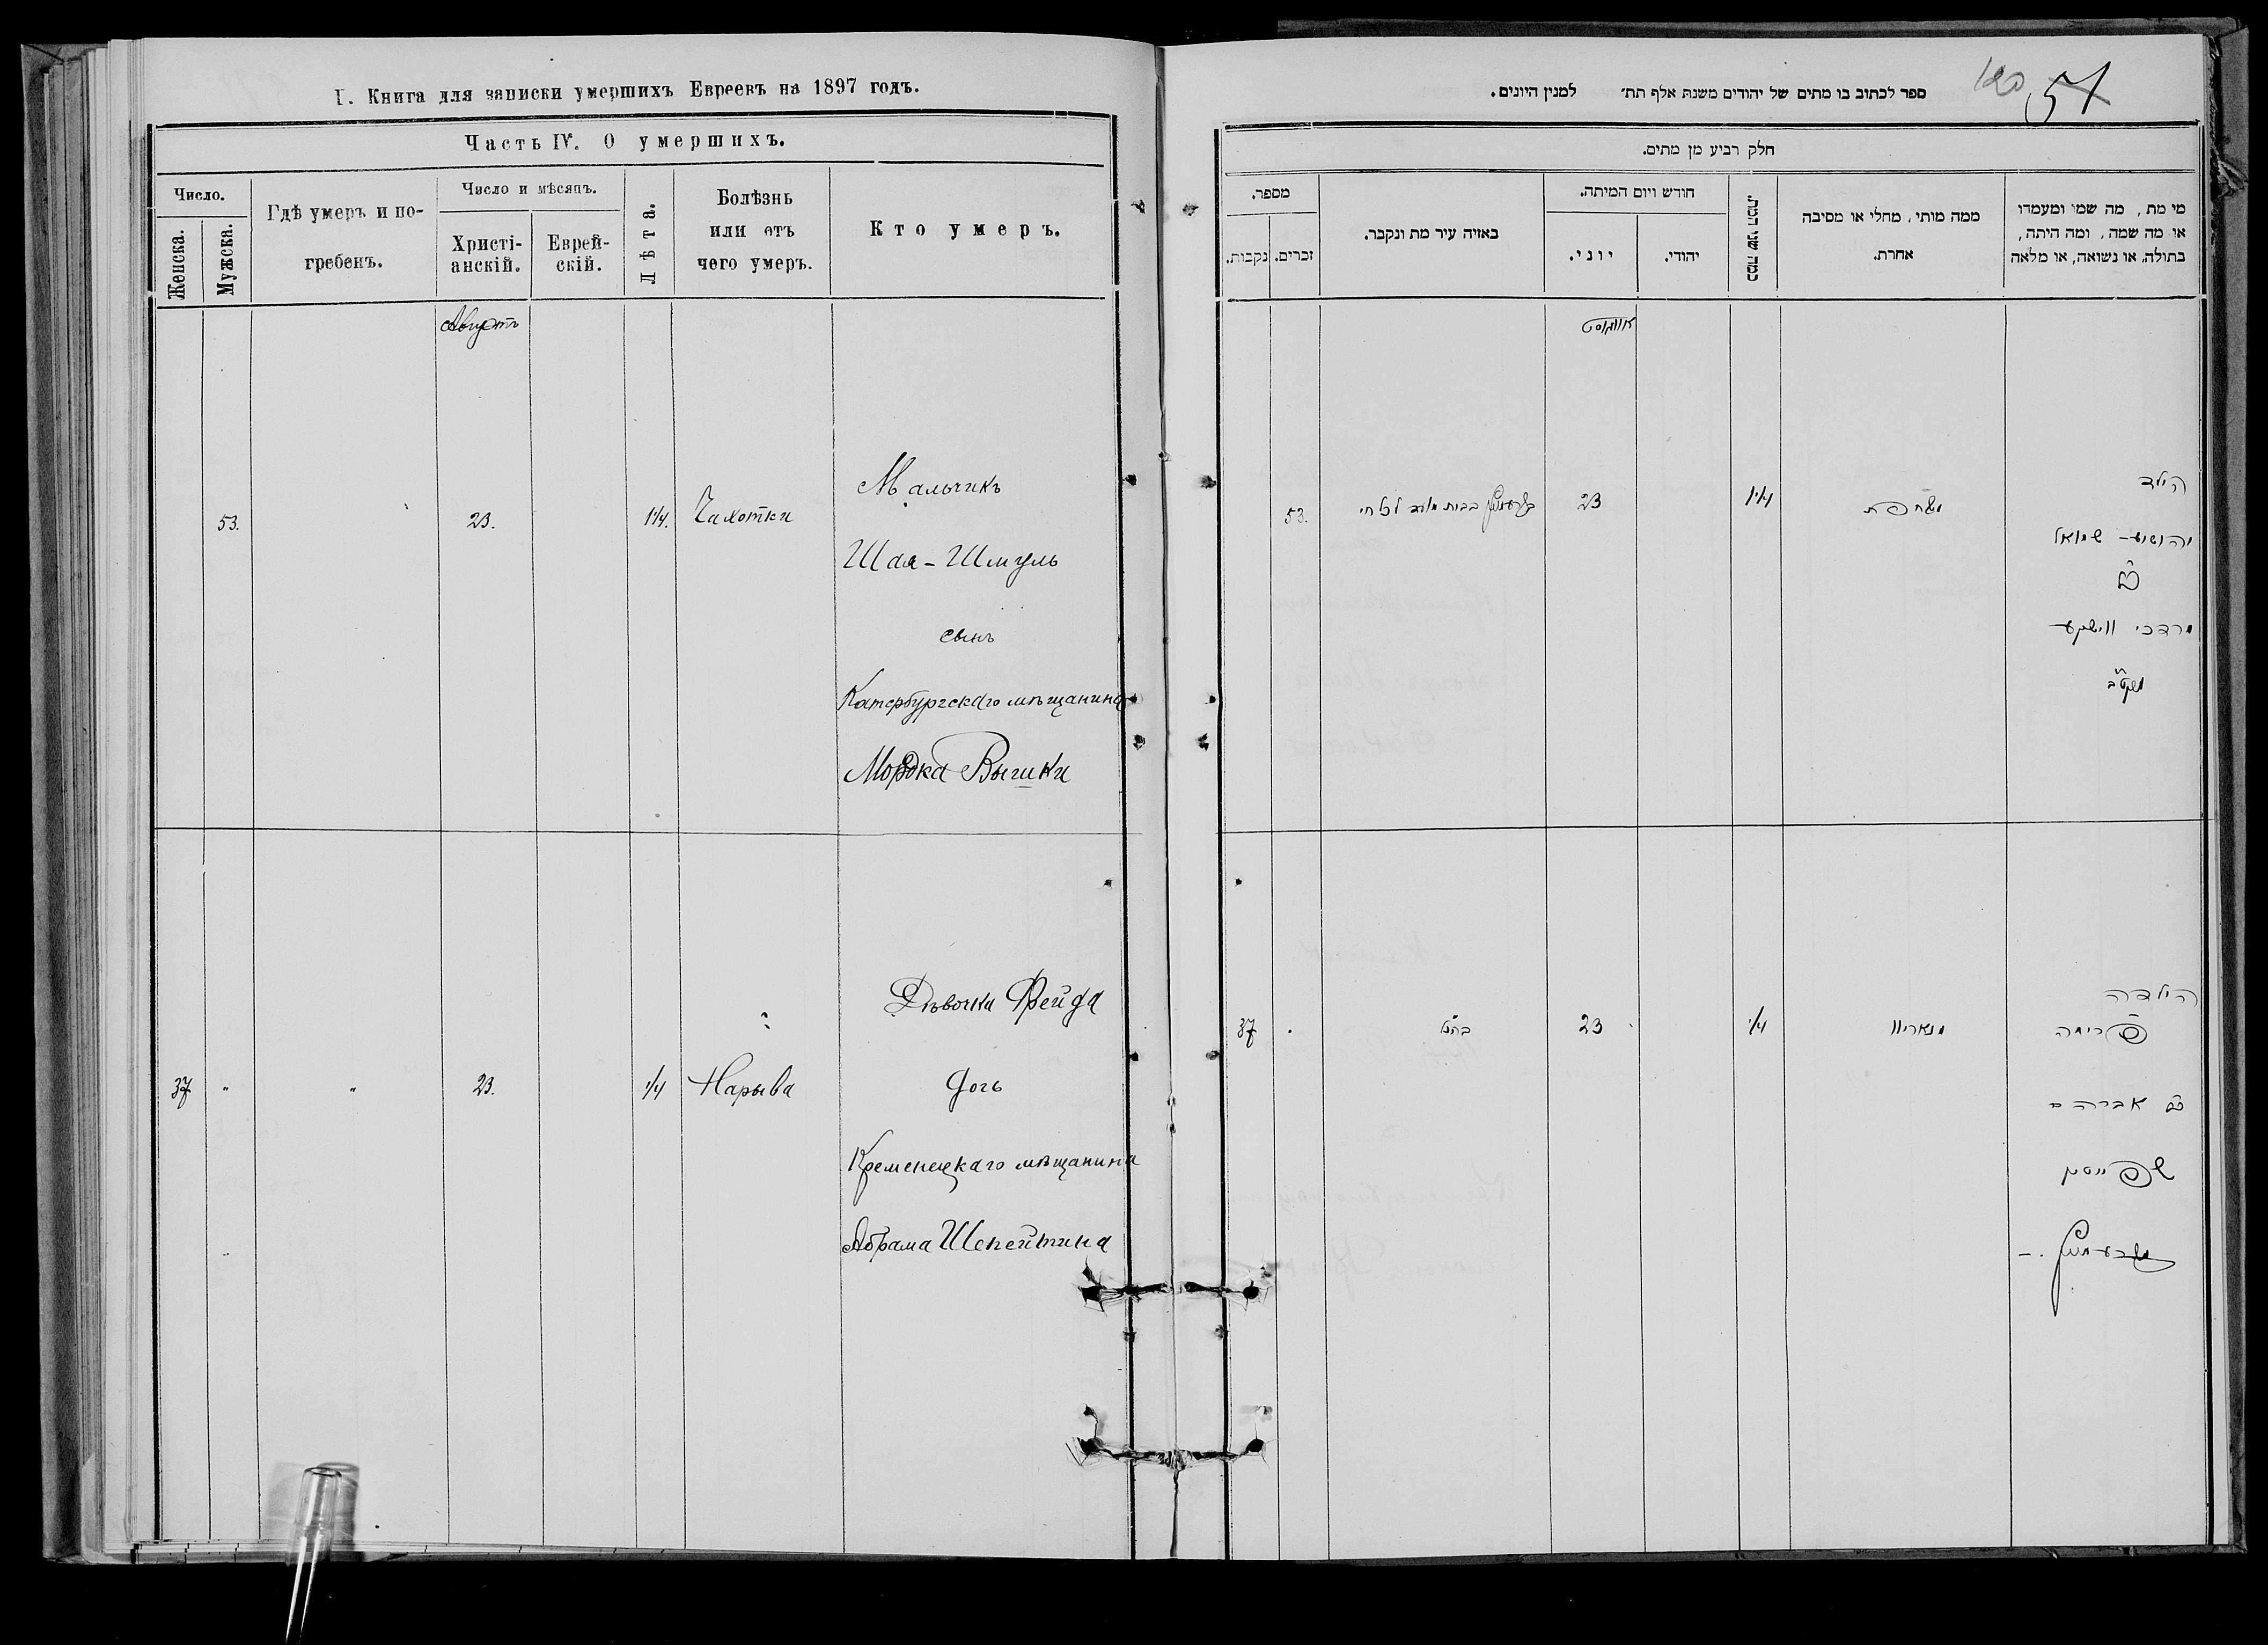 I. Книга для записки умершихъ Евреевъ на 1897 годъ.
Часть IV. О умершихъ.
Число.
Женска.
Мужска.
Гдѣ умеръ и по-
гребенъ.
Число и мѣсяцъ.
Христі-
анскій.
Еврей-
скій.
Лѣта.
Болѣзнь
или отъ
чего умеръ.
Кто умеръ.
Августъ
53.
23.
1 1/4.
Чахотки
Мальчикъ
Шая-Шмуль
сынъ
Катербургскаго мѣщанина
Мордка Вышки
37
"
"
23.
1/4
Нарыва
Дѣвочка Фрейда
дочь
Кременецкаго мѣщанина
Абрама Шепейтина
ספר לכתוב בו מתים של יהודים משנת אלף תת׳ למנין היונים.
120
51
חלק רביע מן מתים.
מספר.
נקבות.
זכרים.
באזיה עיר מת ונקבר.
חודש ויום המיתה.
יוני.
יהודי.
כמה שני המת.
ממה מותי, מחלי או מסיבה
אחרת.
מי מת, מה שמו ומעמדו
או מה שמה, ומה היתה,
בתולה, או נשואה, או מלאה
אווגוסט
53.
23
1 1/4
משחפת
הילד
יהושע - שמואל
בן
מרדכי ווישקע
37
23
1/4
הילדה
בת אברהם